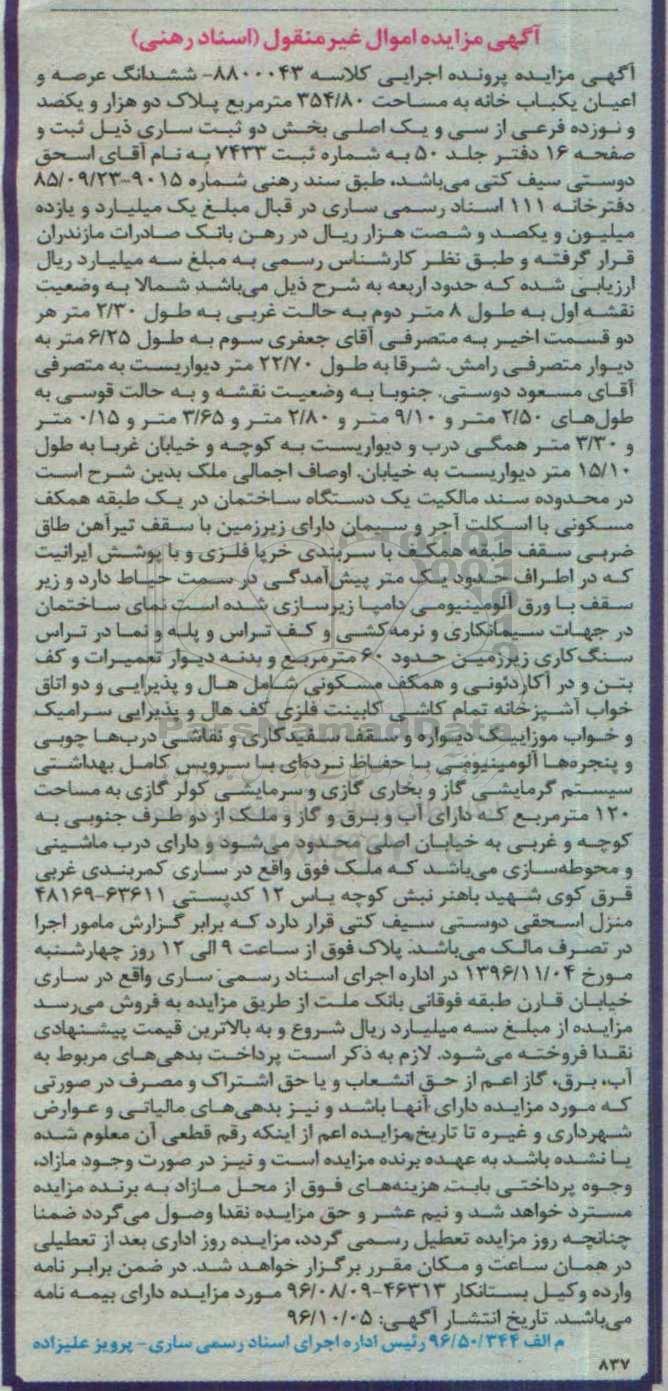 آگهی مزایده اموال غیرمنقول (اسناد رهنی)
آگهی مزایده پرونده اجرایی کلاسه ۸۸۰۰۰۴۳- ششدانگ عرصه و
اعیان یکباب خانه به مساحت ۳۵۴/۸۰ مترمربع پلاک دو هزار و یکصد
و نوزده فرعی از سی و یک اصلی بخش دو ثبت ساری ذیل ثبت و
صفحه ۱۶ دفتر جلد ۵۰ به شماره ثبت ۷۴۳۳ به نام آقای اسحق
دوستی سیف کتی می‌باشد، طبق سند رهنی شماره ۹۰۱۵-۸۵/۰۹/۲۳
دفترخانه ۱۱۱ اسناد رسمی ساری در قبال مبلغ یک میلیارد و یازده
میلیون و یکصد و شصت هزار ریال در رهن بانک صادرات مازندران
قرار گرفته و طبق نظر کارشناس رسمی به مبلغ سه میلیارد ریال
ارزیابی شده که حدود اربعه به شرح ذیل می‌باشد. شمالا به وضعیت
نقشه اول به طول ۸ متر دوم به حالت غربی به طول ۲/۳۰ متر هر
دو قسمت اخیر به متصرفی آقای جعفری سوم به طول ۶/۲۵ متر به
دیوار متصرفی رامش. شرقا به طول ۲۲/۷۰ متر دیواریست به متصرفی
آقای مسعود دوستی. جنوبا به وضعیت نقشه و به حالت قوسی به
طول‌های ۲/۵۰ متر و ۹/۱۰ متر و ۲/۸۰ متر و ۳/۶۵ متر و ۰/۱۵ متر
و ۳/۳۰ متر همگی درب و دیواریست به کوچه و خیابان غربا به طول
۱۵/۱۰ متر دیواریست به خیابان. اوصاف اجمالی ملک بدین شرح است
در محدوده سند مالکیت یک دستگاه ساختمان در یک طبقه همکف
مسکونی با اسکلت آجر و سیمان دارای زیرزمین با سقف تیرآهن طاق
ضربی سقف طبقه همکف با سربندی خرپا فلزی و با پوشش ایرانیت
که در اطراف حدود یک متر پیش‌آمدگی در سمت حیاط دارد و زیر
سقف با ورق آلومینیومی دامپا زیرسازی شده است نمای ساختمان
در جهات سیمانکاری و نرمه‌کشی و کف تراس و پله و نما در تراس
سنگ‌کاری زیرزمین حدود ۶۰ مترمربع و بدنه دیوار تعمیرات و کف
بتن و در آکاردئونی و همکف مسکونی شامل هال و پذیرایی و دو اتاق
خواب آشپزخانه تمام کاشی کابینت فلزی کف هال و پذیرایی سرامیک
و خواب موزاییک دیواره و سقف سفیدکاری و نقاشی درب‌ها چوبی
و پنجره‌ها آلومینیومی با حفاظ نرده‌ای با سرویس کامل بهداشتی
سیستم گرمایشی گاز و بخاری گازی و سرمایشی کولر گازی به مساحت
۱۲۰ مترمربع که دارای آب و برق و گاز و ملک از دو طرف جنوبی به
کوچه و غربی به خیابان اصلی محدود می‌شود و دارای درب ماشینی
و محوطه‌سازی می‌باشد که ملک فوق واقع در ساری کمربندی غربی
قرق کوی شهید باهنر نبش کوچه یاس ۱۲ کدپستی ۶۳۶۱۱-۴۸۱۶۹
منزل اسحقی دوستی سیف کتی قرار دارد که برابر گزارش مامور اجرا
در تصرف مالک می‌باشد. پلاک فوق از ساعت ۹ الی ۱۲ روز چهارشنبه
مورخ ۱۳۹۶/۱۱/۰۴ در اداره اجرای اسناد رسمی ساری واقع در ساری
خیابان قارن طبقه فوقانی بانک ملت از طریق مزایده به فروش می‌رسد
مزایده از مبلغ سه میلیارد ریال شروع و به بالاترین قیمت پیشنهادی
نقدا فروخته می‌شود. لازم به ذکر است پرداخت بدهی‌های مربوط به
آب، برق، گاز اعم از حق انشعاب و یا حق اشتراک و مصرف در صورتی
که مورد مزایده دارای آنها باشد و نیز بدهی‌های مالیاتی و عوارض
شهرداری و غیره تا تاریخ مزایده اعم از اینکه رقم قطعی آن معلوم شده
یا نشده باشد به عهده برنده مزایده است و نیز در صورت وجود مازاد،
وجوه پرداختی بابت هزینه‌های فوق از محل مازاد به برنده مزایده
مسترد خواهد شد و نیم عشر و حق مزایده نقدا وصول می‌گردد ضمنا
چنانچه روز مزایده تعطیل رسمی گردد، مزایده روز اداری بعد از تعطیلی
در همان ساعت و مکان مقرر برگزار خواهد شد. در ضمن برابر نامه
وارده وکیل بستانکار ۴۶۳۱۳-۹۶/۰۸/۰۹ مورد مزایده دارای بیمه نامه
می‌باشد. تاریخ انتشار آگهی: ۹۶/۱۰/۰۵
م الف ۹۶/۵۰/۳۴۴ رئیس اداره اجرای اسناد رسمی ساری- پرویز علیزاده
۸۳۷
ParsNamadData